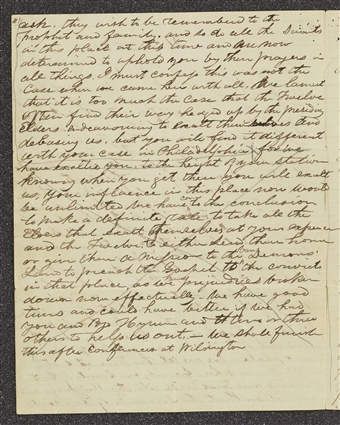 ask. they wish to be remembered to the
prophet and family. and so do all the Saints
in this place at this time and are now
determined to uphold you by their prayers in
all things. I must confess this was not the
case when we came here with all. We learned
that it is too much the case that the Twelve
often find their way hedged up by the presiding
Elders endeavouring to exalt themselves and
debasing us. but you will find it different
with your case in Philadelphia for we
have exalted you to the height of your station
knowing when you get there you will exalt
us, your influence in this place now would
be unlimited We have to the conclusion
to make a definite rule to take all the
Elders that exalt themselves at your expence
and the Twelve to either send them home
or give them a mission to the Demons
Land to preach the Gospel to the convicts
in that place, as prejudice is broken
down now effectually. We have good
times and could have better if we had
you and Br Hyrum and then two or three
others to help us out. We shall finish
this after Conference at Wilmington